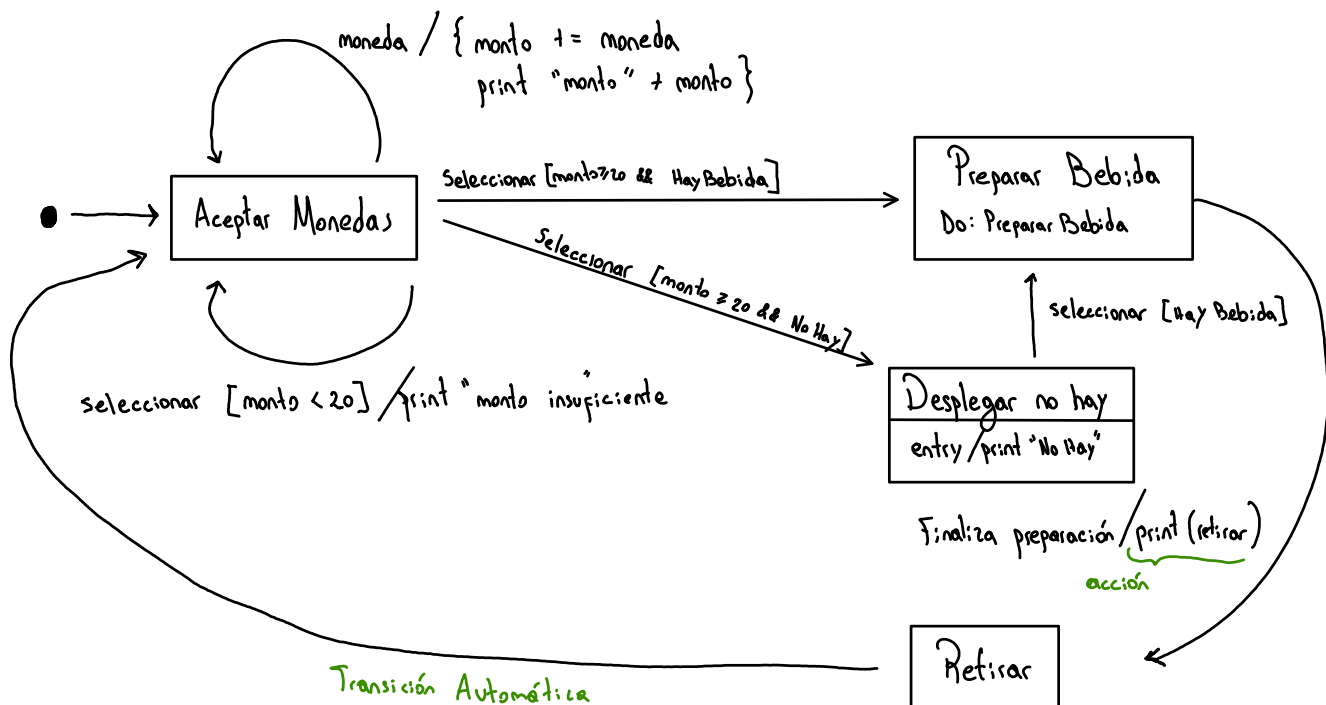 moneda / { monto += moneda
print "monto" + monto }
Aceptar Monedas
Seleccionar [monto≥20 && HayBebida]
Preparar Bebida
Do: Preparar Bebida
Seleccionar [monto ≥ 20 && No Hay]
seleccionar [Hay Bebida]
seleccionar [monto < 20] / print "monto insuficiente"
Desplegar no hay
entry / print "No Hay"
Finaliza preparación / print (retirar)
acción
Retirar
Transición Automática